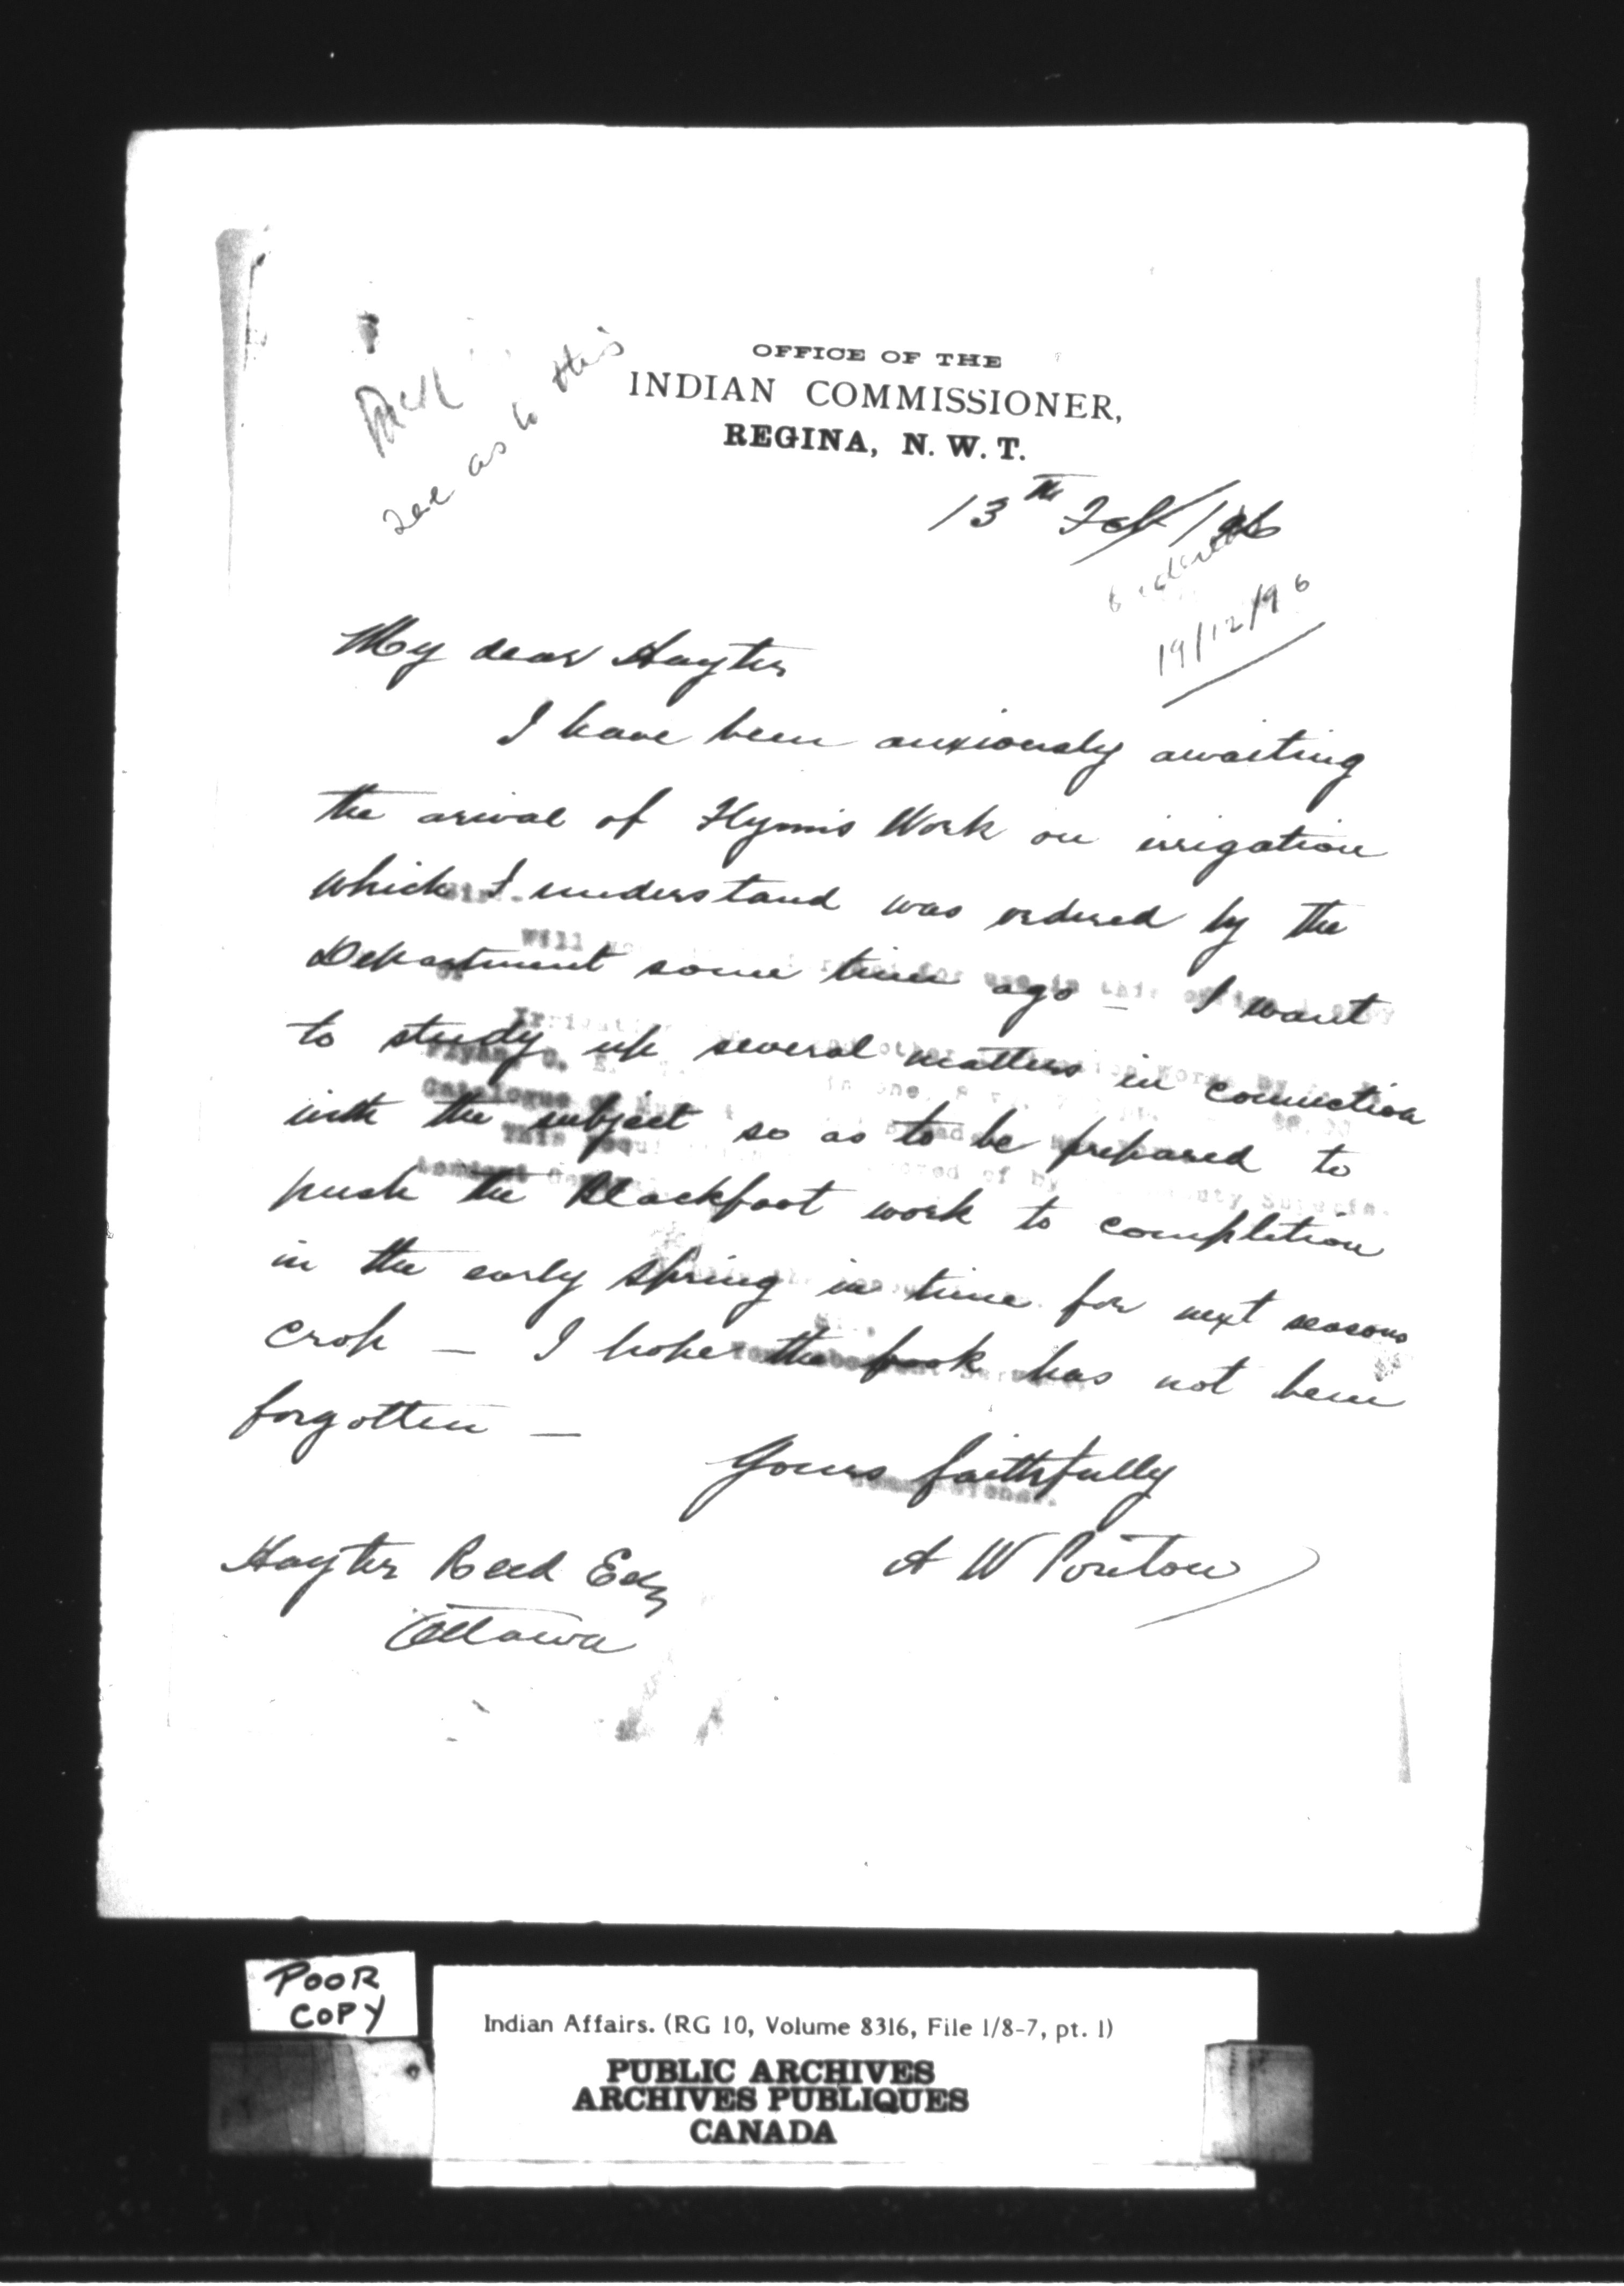 see as to this
OFFICE OF THE
INDIAN COMMISSIONER,
REGINA, N. W. T.
13th Feb/96
19/12/96
My dear Hayter
I have been anxiously awaiting
the arival of Flynn's Work on irrigation
which I understand was ordered by the
Department some time ago – I want
to study up several matters in connection
with the subject so as to be prepared to
push the Blackfoot work to completion
in the early spring in time for next seasons
crop – I hope the book has not been
forgotten –
Yours faithfully
A W Ponton
Hayter Reed Esq
Ottawa
POOR
COPY
Indian Affairs. (RG 10, Volume 8316, File 1/8-7, pt. 1)
PUBLIC ARCHIVES
ARCHIVES PUBLIQUES
CANADA